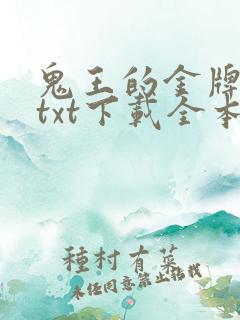 鬼王的金牌
txt下載全本
種村有菜
未經同意禁止轉載